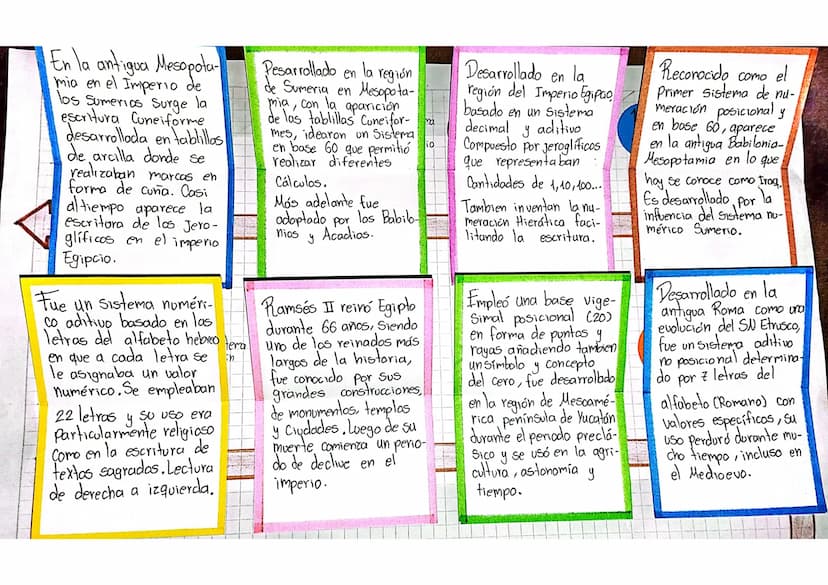 En la antigua Mesopota-
mia en el Imperio de
los Sumerios Surge la
escritura Cuneiforme
desarrollada en tablillas
de arcilla donde se
realizaban marcas en
forma de cuña. Casi
al tiempo aparece la
escritora de los Jero-
glíficos en el imperio
Egipcio.
Desarrollado en la región
de Sumeria en Mesopota-
mia, con la aparición
de las tablillas Cuneifor-
mes, idearon un Sistema
en base 60 que permitió
realizar diferentes
Cálculos.
Más adelante fue
adoptado por los Babilo-
nios y Acadios.
Desarrollado en la
región del Imperio Egipcio,
basado en un Sistema
decimal y aditivo
Compuesto por jeroglíficos
que representaban :
Cantidades de 1,10,100...
Tambien inventan la nu-
meración Hierática faci-
litando la escritura.
Reconocido como el
Primer sistema de nu-
meración posicional y
en base 60, aparece
en la antigua Babilonia-
Mesopotamia en lo que
hoy se conoce como Iraq.
Es desarrollado por la
influencia del Sistema nu-
mérico Sumerio.
Fue un sistema numéri-
co aditivo basado en las
letras del alfabeto hebreo
en que a cada letra se
le asignaba un valor
numérico. Se empleaban
22 letras y su uso era
particularmente religioso
como en la escritura de
textos sagrados. Lectura
de derecha a izquierda.
Ramsés II reinó Egipto
durante 66 años, siendo
uno de los reinados más
largos de la historia,
fue conocido por sus
grandes construcciones,
de monumentos, templos
y Ciudades. Luego de su
muerte comienza un perio-
do de declive en el
imperio.
Empleó una base vige-
simal posicional (20)
en forma de puntos y
rayas añadiendo tambien
un símbolo y concepto
del cero, fue desarrollado
en la región de Mesoamé-
rica península de Yucatán
durante el periodo preclá-
sico y se usó en la agri-
cultura, astonomía y
tiempo.
Desarrollado en la
antigua Roma como una
evolución del SN Etrusco,
fue un sistema aditivo
no posicional determina-
do por 7 letras del
alfabeto (Romano) con
valores específicos, su
uso perduró durante mu-
cho tiempo, incluso en
el Medioevo.